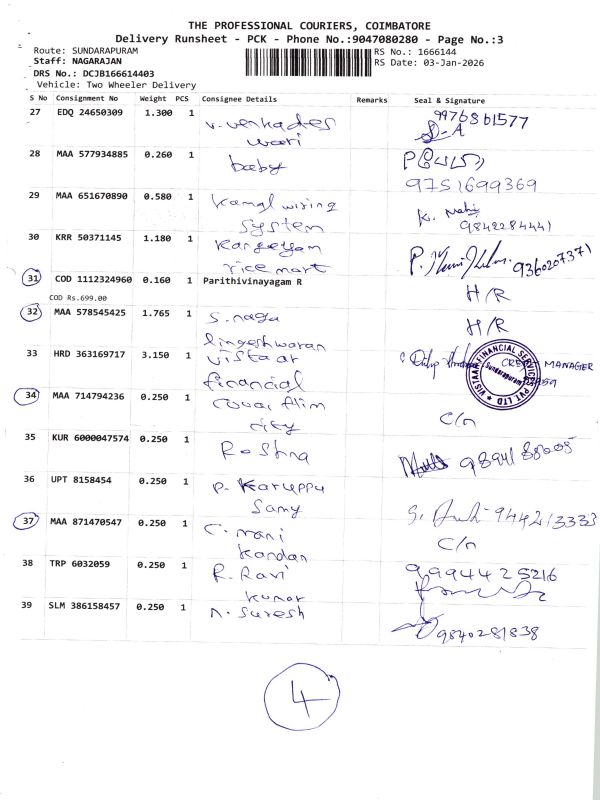 THE PROFESSIONAL COURIERS, COIMBATORE
Delivery Runsheet - PCK - Phone No.:9047080280 - Page No.:3
Route: SUNDARAPURAM RS No.: 1666144
Staff: NAGARAJAN RS Date: 03-Jan-2026
DRS No.: DCJB166614403
Vehicle: Two Wheeler Delivery
S No Consignment No Weight PCS Consignee Details Remarks Seal & Signature
27 EDQ 24650309 1.300 1 V. Venkades 9976861577
wari
28 MAA 577934885 0.260 1 baby
9751699369
29 MAA 651670890 0.580 1 Kamal wiring K. Mahi
System 9842284441
30 KRR 50371145 1.180 1 Kangeyam 9360207371
rice mart
31 COD 1112324960 0.160 1 Parithivinayagam R H/R
COD Rs.699.00
32 MAA 578545425 1.765 1 S. naga H/R
lingeshwaran
33 HRD 363169717 3.150 1 Vistaar CREDIT MANAGER
financial
VISTAAR FINANCIAL SERVICES PVT LTD
Sundarapuram
34 MAA 714794236 0.250 1 Covai Alim C/n
city
35 KUR 6000047574 0.250 1 Roshna
36 UPT 8158454 0.250 1 P. Karuppu 9442133333
Samy
37 MAA 871470547 0.250 1 C. mani C/n
Kandan
38 TRP 6032059 0.250 1 R. Ravi 9994425216
kumar
39 SLM 386158457 0.250 1 N. Suresh 9840281838
4